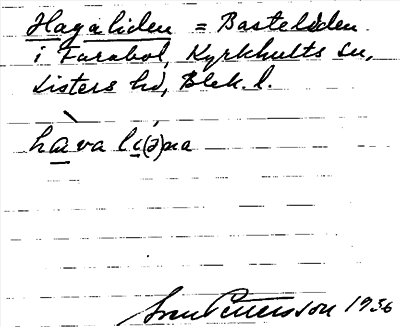 Hagaliden = Basteliden
i Farabol, Kyrkhults sn,
Listers hd, Blek. l.
hàva lí(ə)na
Sven Pettersson 1936